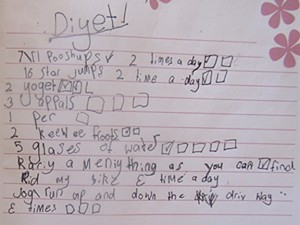 Diyet!
Pooshups 2 times a day
16 star jumps 2 time a day
2 yoget
3 appals
1 per
2 keewee froots
5 glases of water
a menigthing as you can find
Rid my bike & time a day
Jog run up and down the driv way
& times